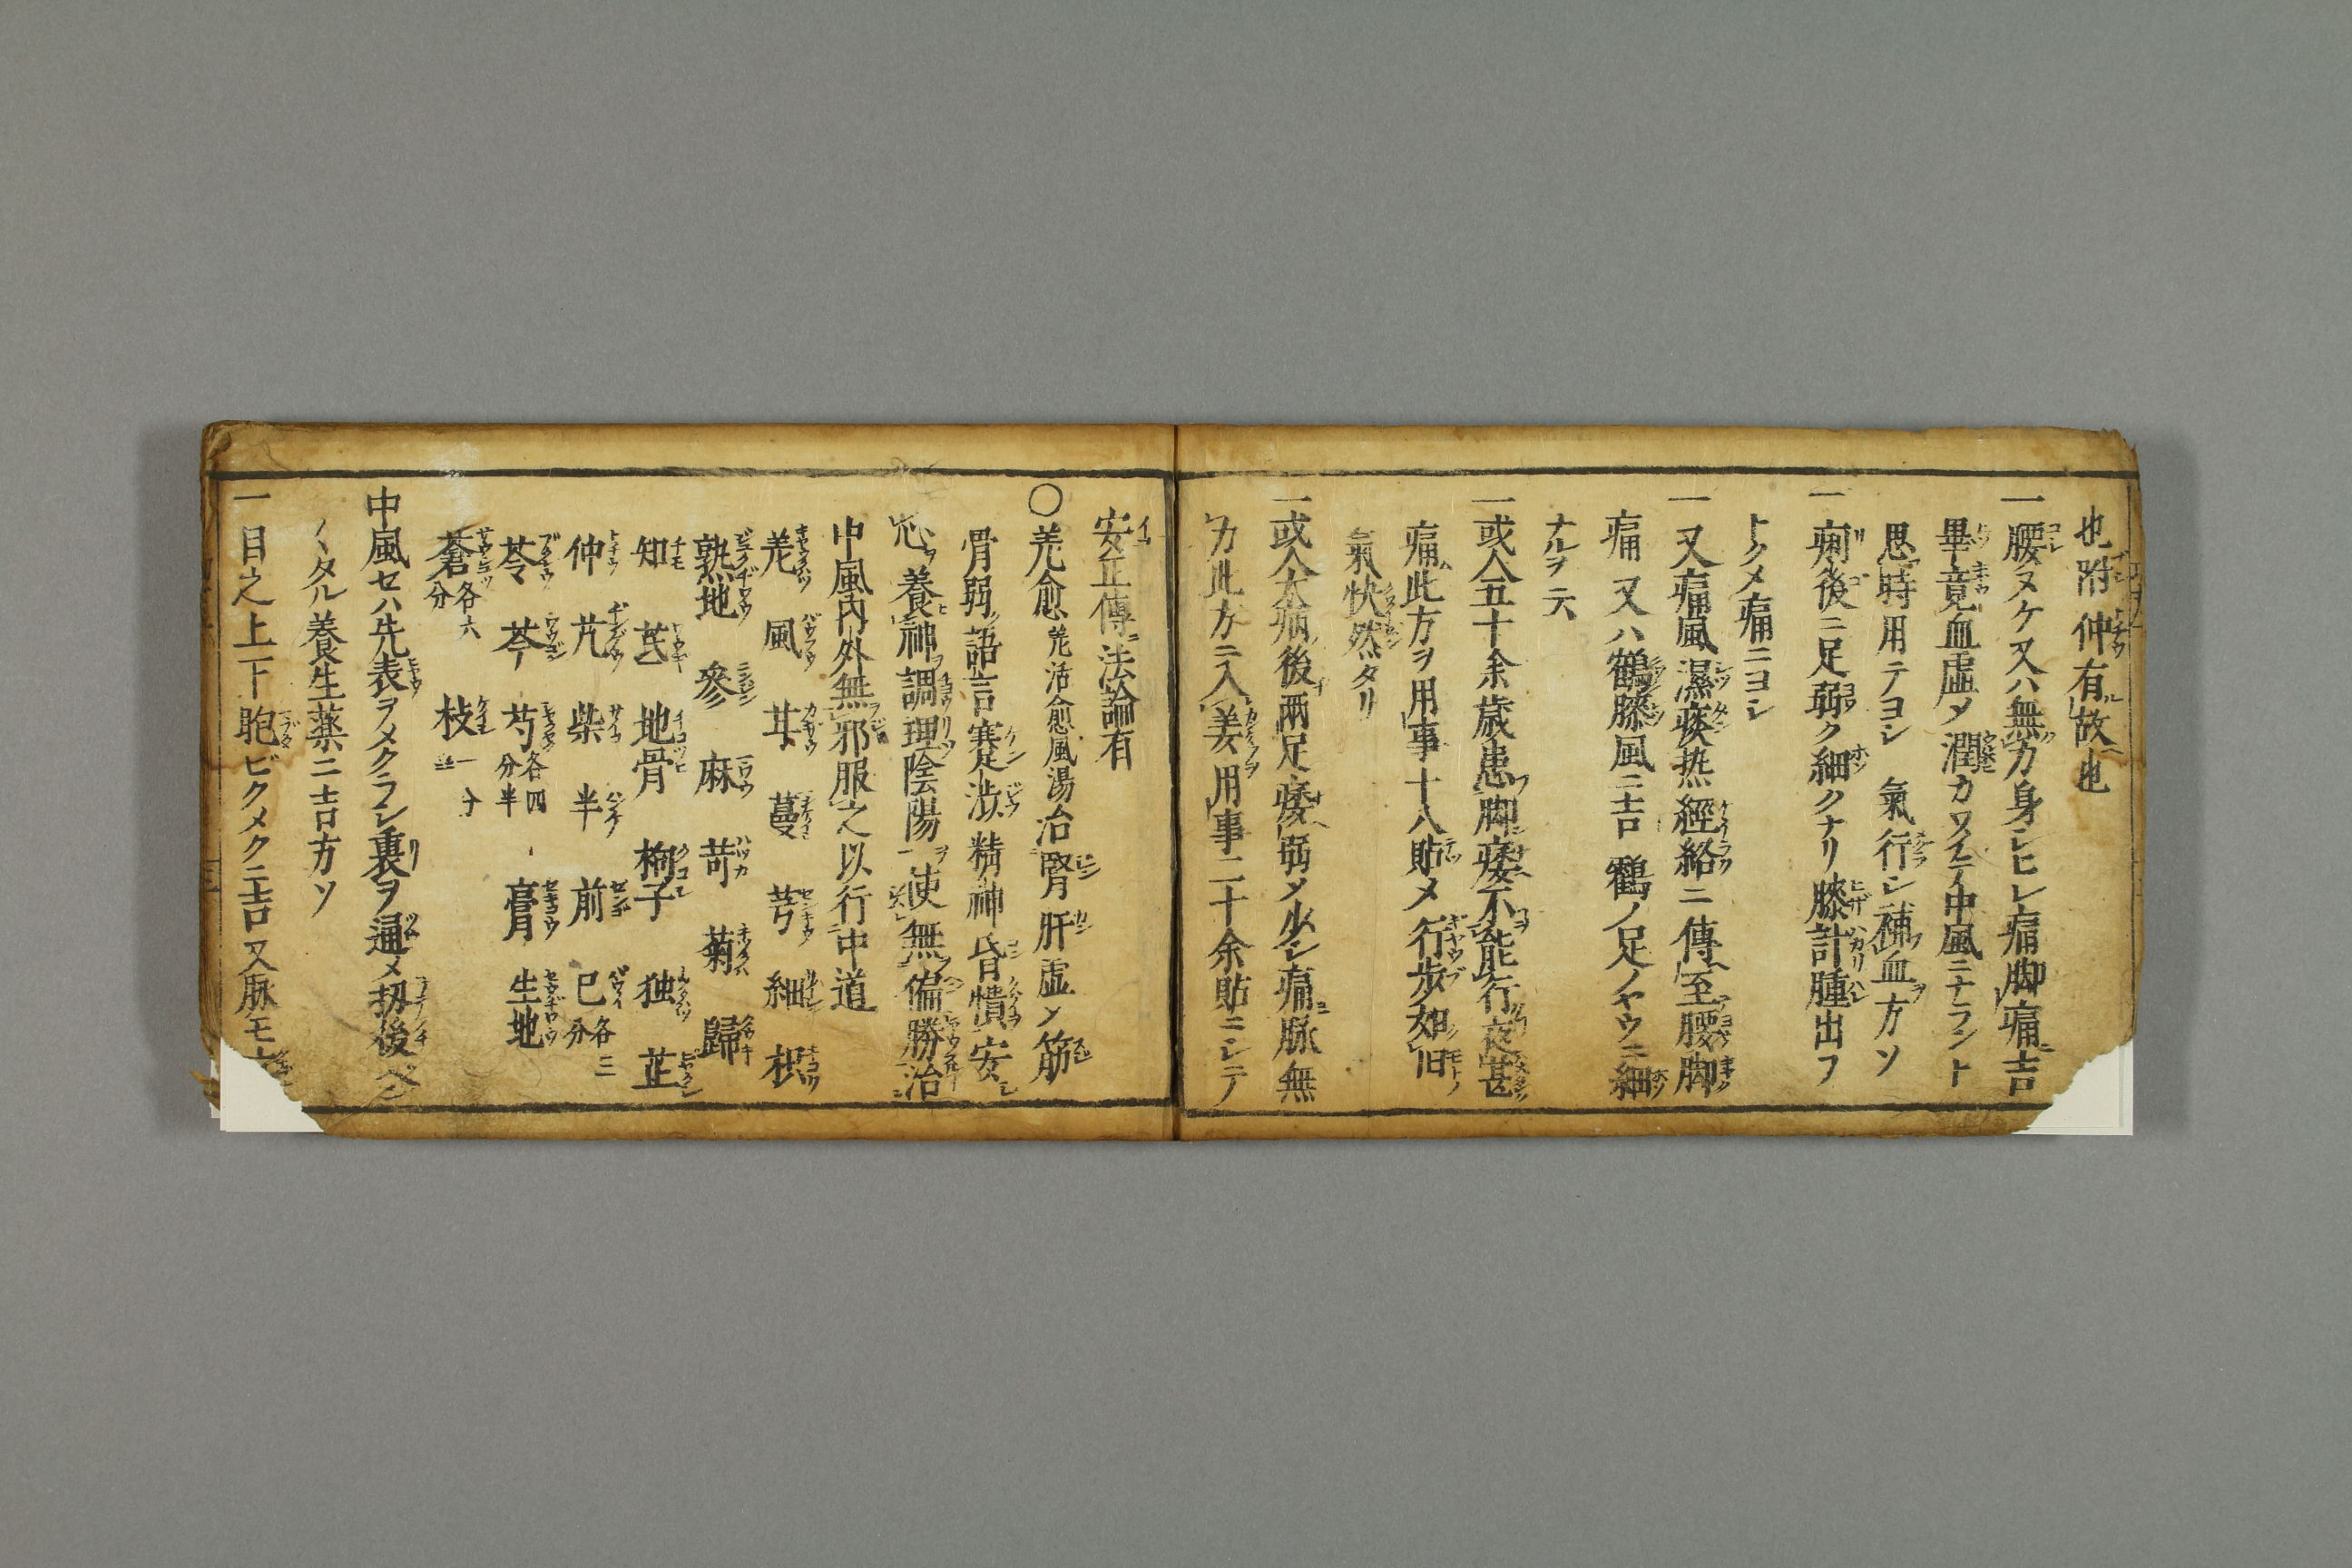 也附仲有故也
一腰ヌケ又ハ無力身シヒレ痛脚痛ニ吉
畢竟血虚メ潤カワイテ中風ニナラント
思時用テヨシ 氣行シ補血方ソ
一痢後ニ足弱ク細クナリ膝計腫出フ
トクメ痛ニヨシ
一又痛風濕痰热經絡ニ傳至腰脚
痛又ハ鶴膝風ニ吉鶴ノ足ノヤウニ細
ナルヲ云
一或人五十余歳患脚痿不能行夜甚
痛此方ヲ用事十八貼メ行步如旧
氣快然タリ
一或人大病後兩足痿弱メ少シ痛脉無
力此方ニ入姜用事二十余貼ニシテ
安正傳ニ法論有
〇羌愈羌活愈風湯治腎肝虚ノ筋
骨弱語言蹇澁精神昏憒安
心養神調理陰陽使無偏勝治
中風内外無邪服之以行中道
羌 風 甘 蔓 芎 細 枳
熟地 參 麻 苛 菊 歸
知 芪 地骨 枸子 独 芷
仲 艽 柴 半 前 已各三分
苓 芩 芍各四分半 膏 生地
蒼各六分 枝一分
中風セハ先表ヲメクラシ裏ヲ通メ扨後ベン
〱タル養生薬ニ吉方ソ
一目之上下胞ビクメクニ吉又脉モ